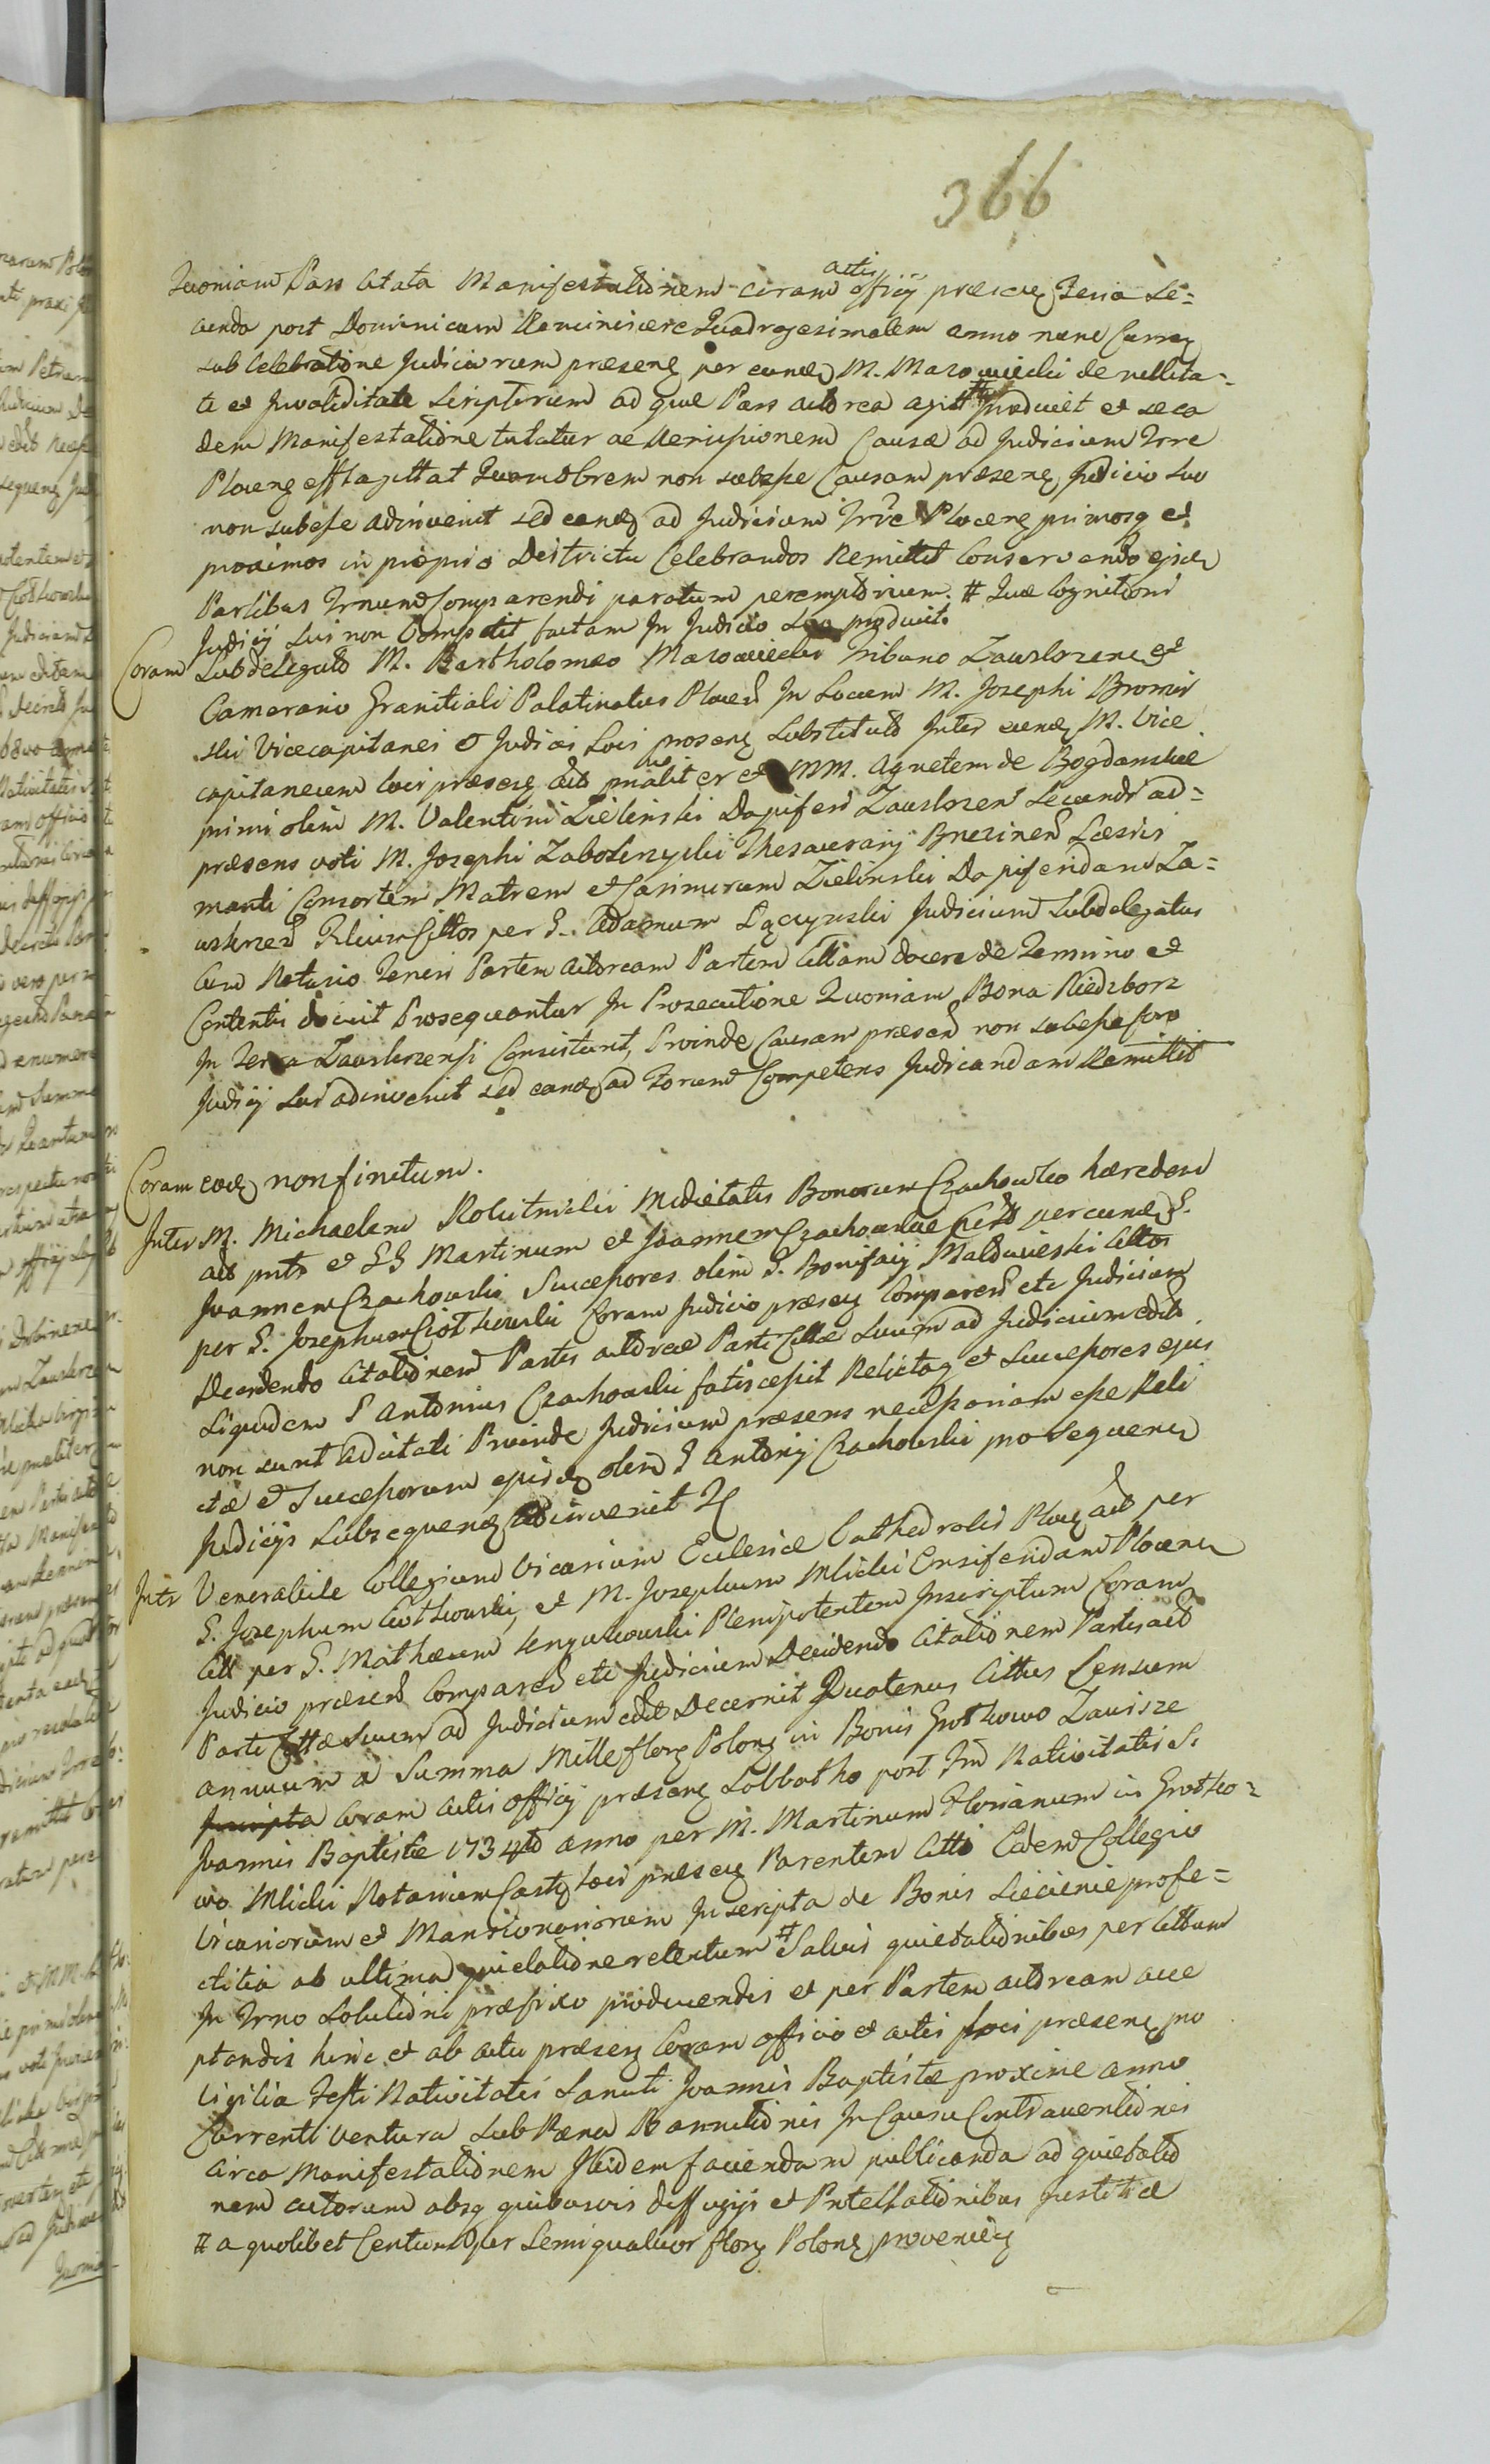 366
Quoniam Pars Citata Manifestationem coram actis officij præsen Feria Se=
cunda post Dominicam Reminiscere Quadragesimalem anno nunc Curren
sub Celebratione Judiciorum præsen per eund M. Mazowiecki de nullita=
te et Invaliditate Scriptorum ad quæ Pars actorea agit # produxit et se ea
dem Manifestatione tutatur ac Remissionem Causæ ad Judicium Trre
Plocen efflagittat Quamobrem non subesse Causam præsen Judicio suo
non subesse adinvenit sed eand ad Judicium Trre Plocen primos et
proximos in proprio Districtu Celebrandos Remittit Conservando ejsdem
Partibus Trnum Comparendi paratum peremptorium. # Quæ Cognitioni
Judicij Sui non Competit factam In Judicio Suo produxit.
Coram Subdelegato M. Bartholomeo Mazowiecki Tribuno Zawskrzen et
Camerario Granitiali Palatinatus Plocen In Locum M. Josephi Bromir
ski Vicecapitanei et Judicis Loci præsen Substituto Inter eund M. Vice
capitaneum loci præsen act prnaliter et MM. Agnetem de Bogdanskie
primi olim M. Valentini Zielinski Dapiferi Zawskrzen Secundi ad=
præsens voti M. Josephi Zaboklicki Thesaurarij Brezinen Cæsaris
manti Consortem Matrem et Casimirum Zielinski Dapiferidam Za=
wskrzen Filium Cittos per G. Adamum Łączynski Judicium Subdelegatus
Cum Notario Terrei Partem actoream Partem Cittam docere de Termino et
Contentis docuit Prosequantur In Prosecutione Quoniam Bona Niedzborz
In Terra Zawskrzensi Consistunt, Proinde Causam præsen non subesse foro
Judicij sui adinvenit sed eand ad Forum Competens Judicandam Remittit
Coram eod non finitum.
Inter M. Michaelem Rokitnicki Medietatis Bonorum Czachowko hæredem
act prnts et GG Martinum et Joannem Czachowskie Citto per eund G.
Joannem Czachowski Successores olim G. Bonifacij Maldowieski Cittos
per G. Josephum Ciotkowski Coram Judicio præsen Comparen etc Judicium
Decidendo Citationem Partis actoreæ Parti Cittæ Suum ad Judicium edit
Siquidem G Antonius Czachowski fatis cessit Relictaq et Successores ejus
non sunt adcitati Proinde Judicium præsens necessariam esse Reli
ctæ et Successorum ejusd olim G Antonij Czachowski pro Sequen
Judicijs Subsequen adinvenit
Intr Venerabile Collegium Vicariorum Ecclesiæ Cathedralis Plocen act per
G. Josephum Ciotkowski, et M. Josephum Mlicki Ensiferidam Plocen
Citt per G. Mathæum Plenipotentem Inscriptum Coram
Judicio præsen Comparen etc Judicium Decidendo Citationem Partis act
Parti Cittæ Suum ad Judicium edit Decernit Quatenus Cittus Censum
annuum a Summa Mille floren Polon in Bonis Grotkowo Zawisze
Inscripta Coram actis officij præsen Sabbatho post Fm Nativitatis S.
Joannis Baptistæ 1734to anno per M. Martinum Florianum in Grotko=
wo Mlicki Notarium Castr loci præsen Parentem Citti Eidem Collegio
Vicariorum et Mansionariorum Inscripta de Bonis Siecienie profe=
ctitia ab ultima quietatione retentum # Salvis quietationibus per Cittum
In Trno Solutioni præfixo producendis et per Partem actoream acce
ptandis hinc et ab actu præsen Coram officio et actis loci præsen pro
Vigilia Festi Nativitatis Sancti Joannis Baptistæ proxime anno
Currenti ventura sub Pæna Bannitionis In Causa Contraventionis
circa Manifestationem Ibidem faciendam publicanda ad quietatio
nem actorum absq quibusvis diffugijs et Protestationibus Justitiæ
# a quolibet Centum per Semiquatuor floren Polon provenien